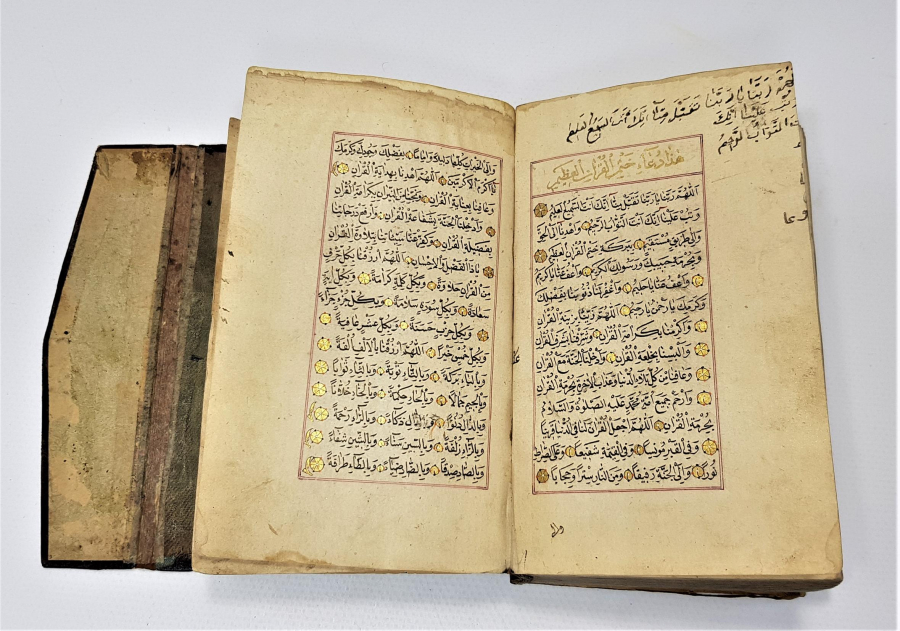 ربنا يا ربنا تقبل منا انك انت السميع العليم
وتب علينا انك
انت التواب الرحيم
هذا دعاء ختم القرآن العظيم
اللهم ربنا يا ربنا تقبل منا انك انت السميع العليم
وتب علينا انك انت التواب الرحيم واهدنا الى الحق
والى طريق مستقيم ببركة ختم القرآن العظيم
وبحرمة حبيبك ورسولك الكريم واعف عنا يا كريم
واعف عنا يا حليم واغفر لنا ذنوبنا بفضلك
وكرمك يا رحمن يا رحيم اللهم زينا بزينة القرآن
واكرمنا بكرامة القرآن وشرفنا بشرافة القرآن
والبسنا بخلعة القرآن وادخلنا الجنة مع القرآن
وعافنا من كل بلاء الدنيا وعذاب الآخرة بحرمة القرآن
وارحم جميع امة محمد عليه الصلوة والسلام
بحرمة القرآن اللهم اجعل القرآن لنا في الدنيا قرينا
وفي القبر مونسا وفي القيمة شفيعا وعلى الصراط
نورا والى الجنة رفيقا ومن النار سترا وحجابا
والى
والى الخيرات كلها دليلا واماما بفضلك وجودك وكرمك
يا اكرم الاكرمين اللهم اهدنا بهداية القرآن
وعافنا بعناية القرآن ونجنا من النيران بكرامة القرآن
وادخلنا الجنة بشفاعة القرآن وارفع درجاتنا
بفضيلة القرآن وكفر عنا سيئاتنا بتلاوة القرآن
يا ذا الفضل والاحسان اللهم ارزقنا بكل حرف
من القرآن حلاوة وبكل كلمة كرامة وبكل آية
سعادة وبكل سورة سلامة وبكل جزء جزاء
وبكل حزب حسنة وبكل عشر عافية
وبكل خمس خيرا اللهم ارزقنا بالالف الفة
وبالباء بركة وبالتاء توبة وبالثاء ثوابا
وبالجيم جمالا وبالحاء حكمة وبالخاء
وبالدال وبالذال ذكاء وبالراء رحمة
وبالزاء زلفة وبالسين سناء وبالشين شفاء
وبالصاد صدقا وبالضاد ضياء وبالطاء طراقة